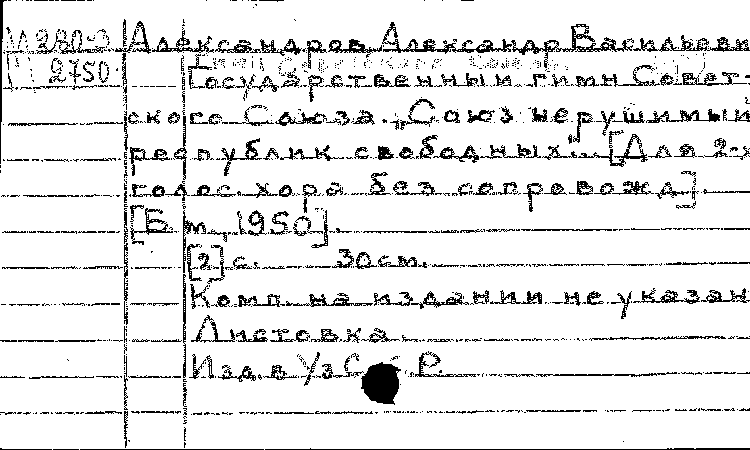 М 280-3 Александров, Александр Васильеви
П 2750 Государственный гимн Совет-
ского Союза. „Союз нерушимый
республик свободных"... [Для 2-х
голос. хора без сопровожд].
[Б. m., 1950].
[2] с. 30 см.
Комп. на издании не указан
Листовка.
Изд. в УзС Р.